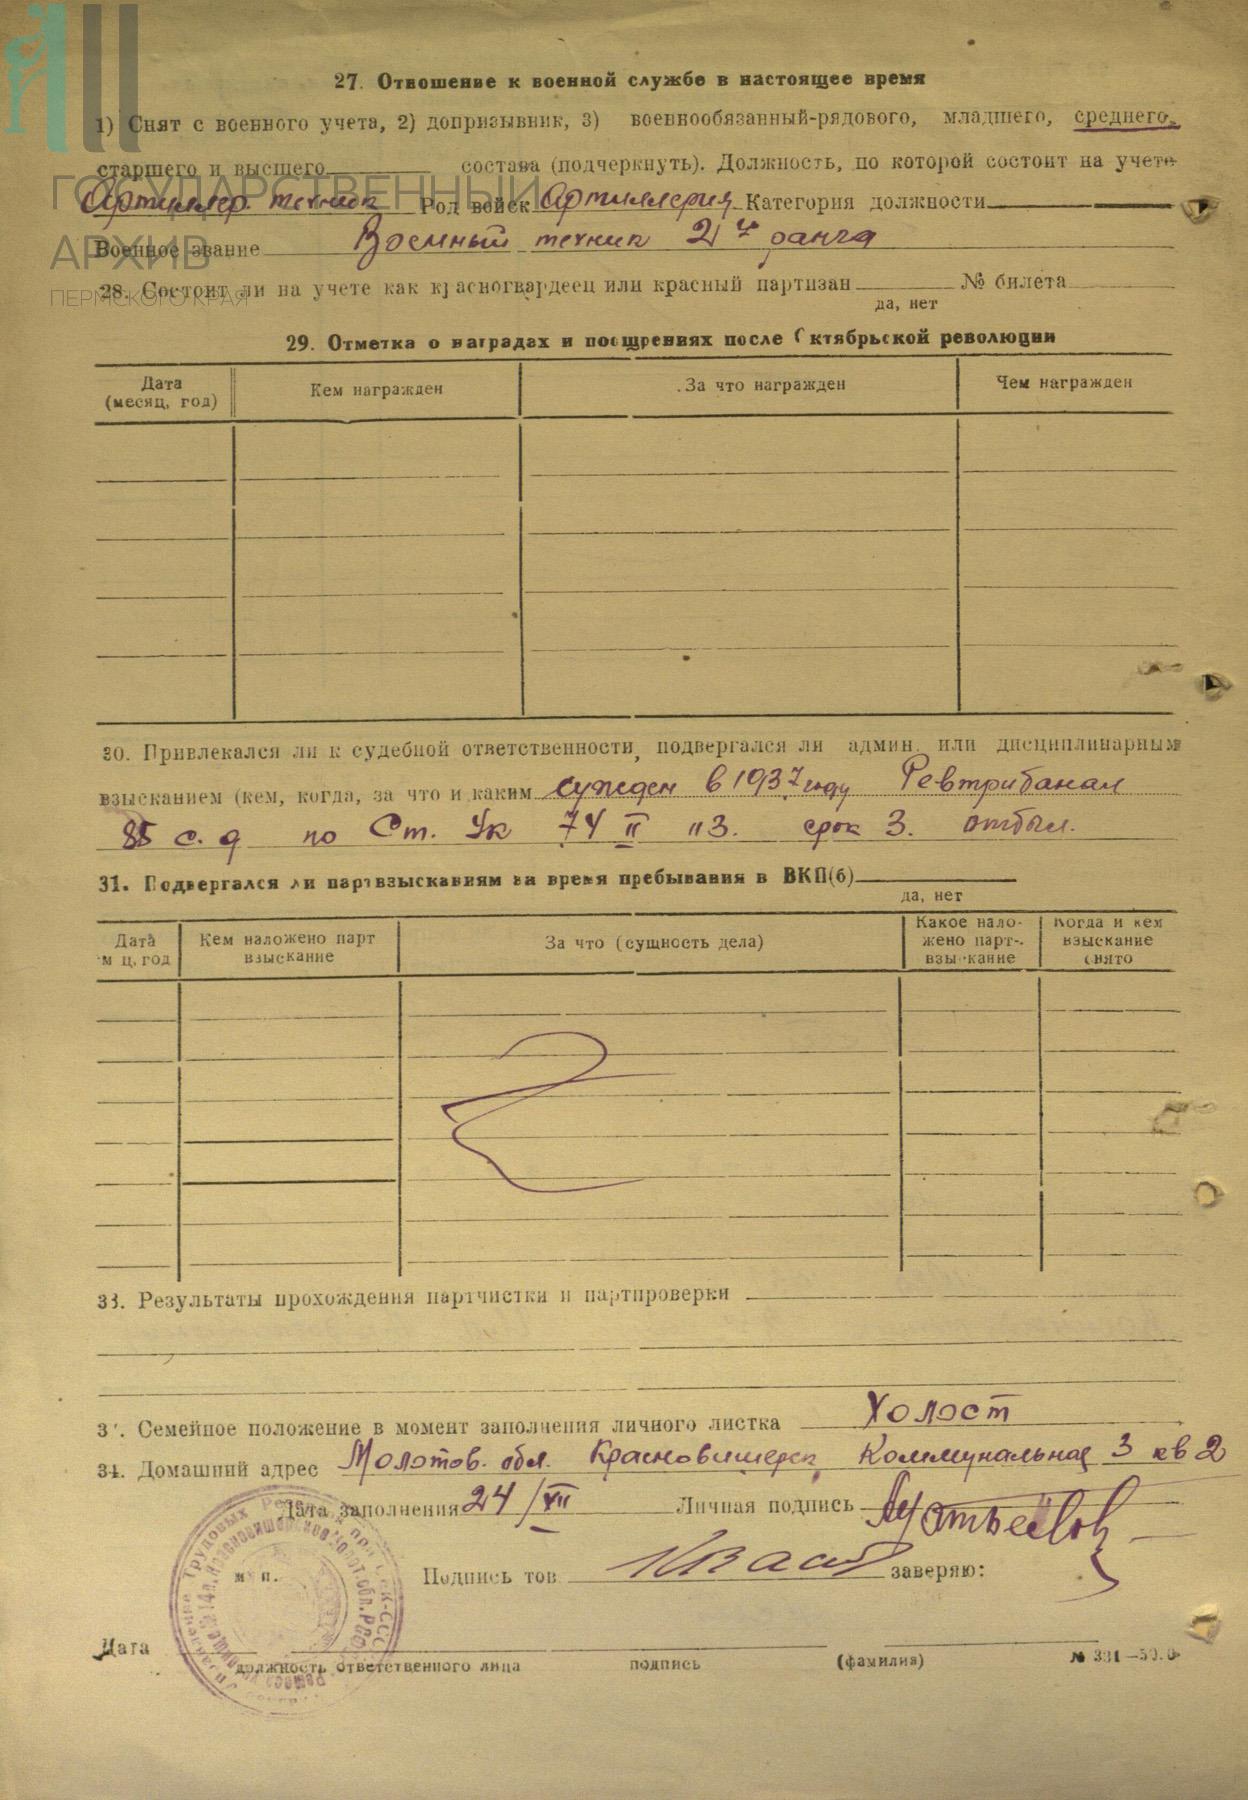 27. Отношение к военной службе в настоящее время
1) Снят с военного учета, 2) допризывник, 3) военнообязанный-рядового, младшего, среднего,
старшего и высшего состава (подчеркнуть). Должность, по которой состоит на учете
ГОСУДАРСТВЕННЫЙ
Артиллер. техник Род войск Артиллерия Категория должности
АРХИВ
Военное звание Военный техник 2го ранга
ПЕРМСКОГО КРАЯ
28. Состоит ли на учете как красногвардеец или красный партизан № билета
да, нет
29. Отметка о наградах и поощрениях после Октябрьской революции
Дата (месяц, год) Кем награжден За что награжден Чем награжден
30. Привлекался ли к судебной ответственности, подвергался ли админ. или дисциплинарным
взысканием (кем, когда, за что и каким сужден в 1937 году Ревтрибанал
85 с. д по Ст. Ук 74 II из. срок 3. отбыл.
31. Подвергался ли партвзысканиям за время пребывания в ВКП(б)
да, нет
Дата м ц, год Кем наложено парт взыскание За что (сущность дела) Какое наложено парт-взыскание Когда и кем взыскание снято
33. Результаты прохождения партчистки и партпроверки
3 . Семейное положение в момент заполнения личного листка Холост
34. Домашний адрес Молотов. обл. Красновишерск Коммунальная 3 кв 2
Дата заполнения 24/XII Личная подпись
м п. Подпись тов заверяю:
Дата
должность ответственного лица подпись (фамилия) № 331—50.0